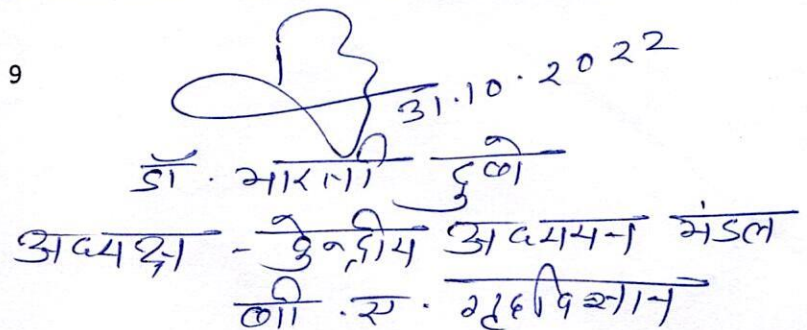 9
31.10.2022
डॉ. भारती दुबे
अध्यक्ष - केन्द्रीय अध्ययन मंडल
बी.एस. गृहविज्ञान